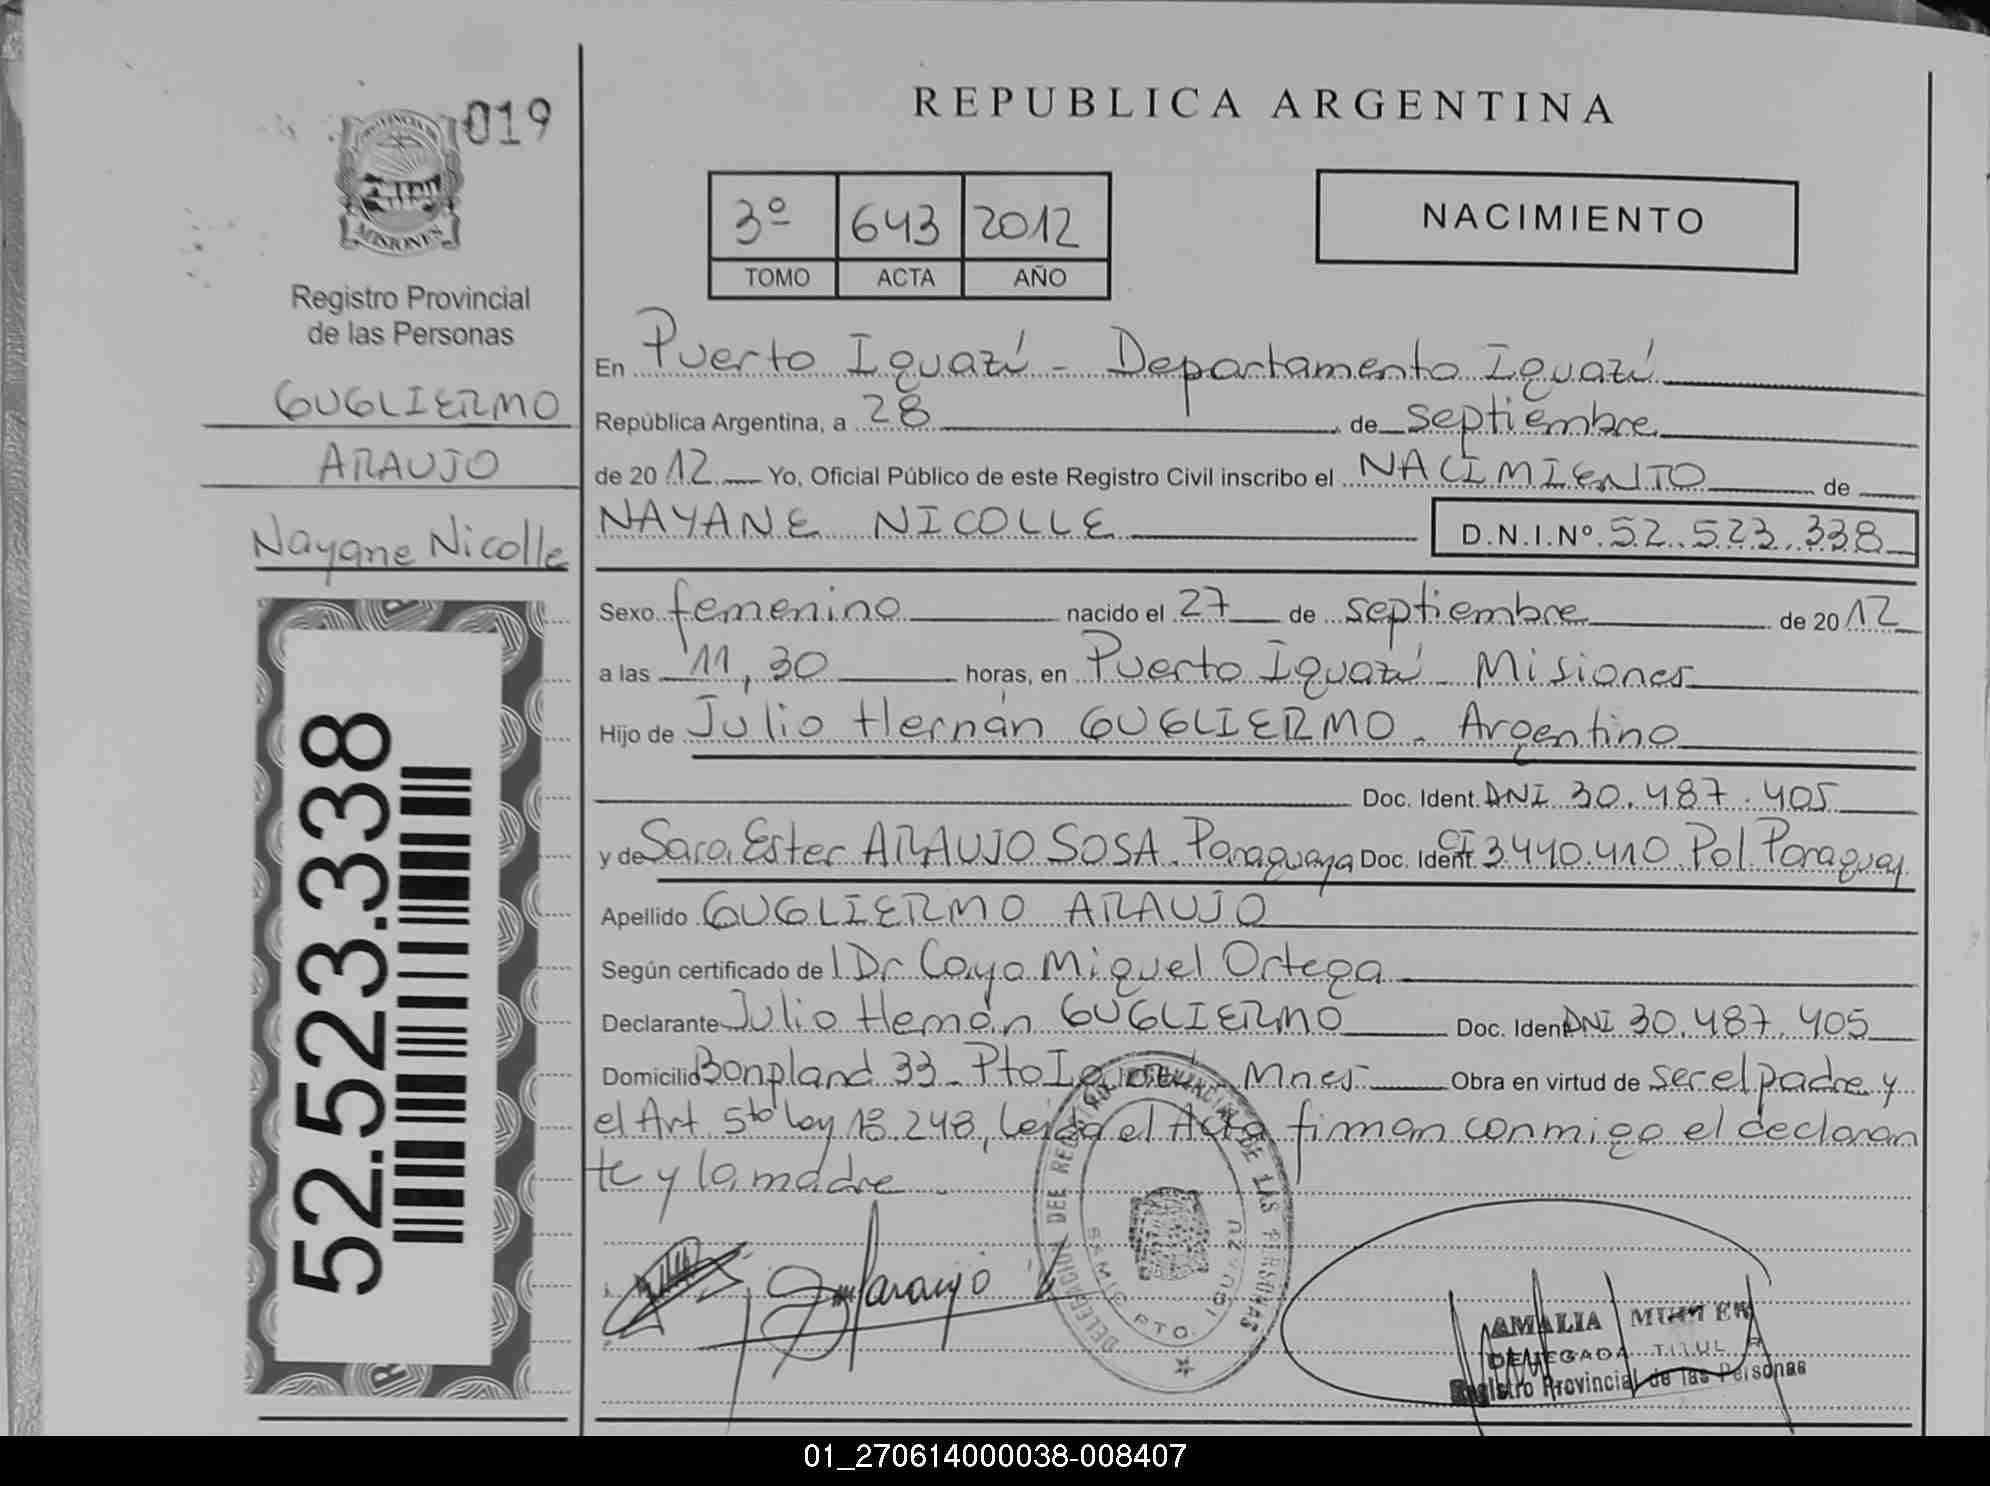 019
PROVINCIA DE
MISIONES
Registro Provincial
de las Personas
GUGLIERMO
ARAUJO
Nayane Nicolle
52.523.338
REPUBLICA ARGENTINA
3º 643 2012
TOMO ACTA AÑO
NACIMIENTO
En Puerto Iguazú - Departamento Iguazú
República Argentina, a 28 de septiembre
de 2012 Yo, Oficial Público de este Registro Civil inscribo el NACIMIENTO de
NAYANE NICOLLE D.N.I.Nº 52.523.338
Sexo femenino nacido el 27 de septiembre de 2012
a las 11,30 horas, en Puerto Iguazú - Misiones
Hijo de Julio Hernán GUGLIERMO. Argentino
Doc. Ident. DNI 30.487.405
y de Sara Ester ARAUJO SOSA. Paraguaya Doc. Ident. CI 3.440.410 Pol. Paraguay
Apellido GUGLIERMO ARAUJO
Según certificado de Dr Cayo Miguel Ortega
Declarante Julio Hernán GUGLIERMO Doc. Ident. DNI 30.487.405
Domicilio Bonpland 33 - Pto Iguazú - Mnes Obra en virtud de ser el padre y
el Art. 5to Ley 18.248, Leída el Acta firman conmigo el declaran
te y la madre
araujo
DELEGACION DEL REGISTRO PROVINCIAL DE LAS PERSONAS
SAMIC PTO. IGUAZU
AMALIA
DELEGADA TITULAR
Registro Provincial de las Personas
01_270614000038-008407